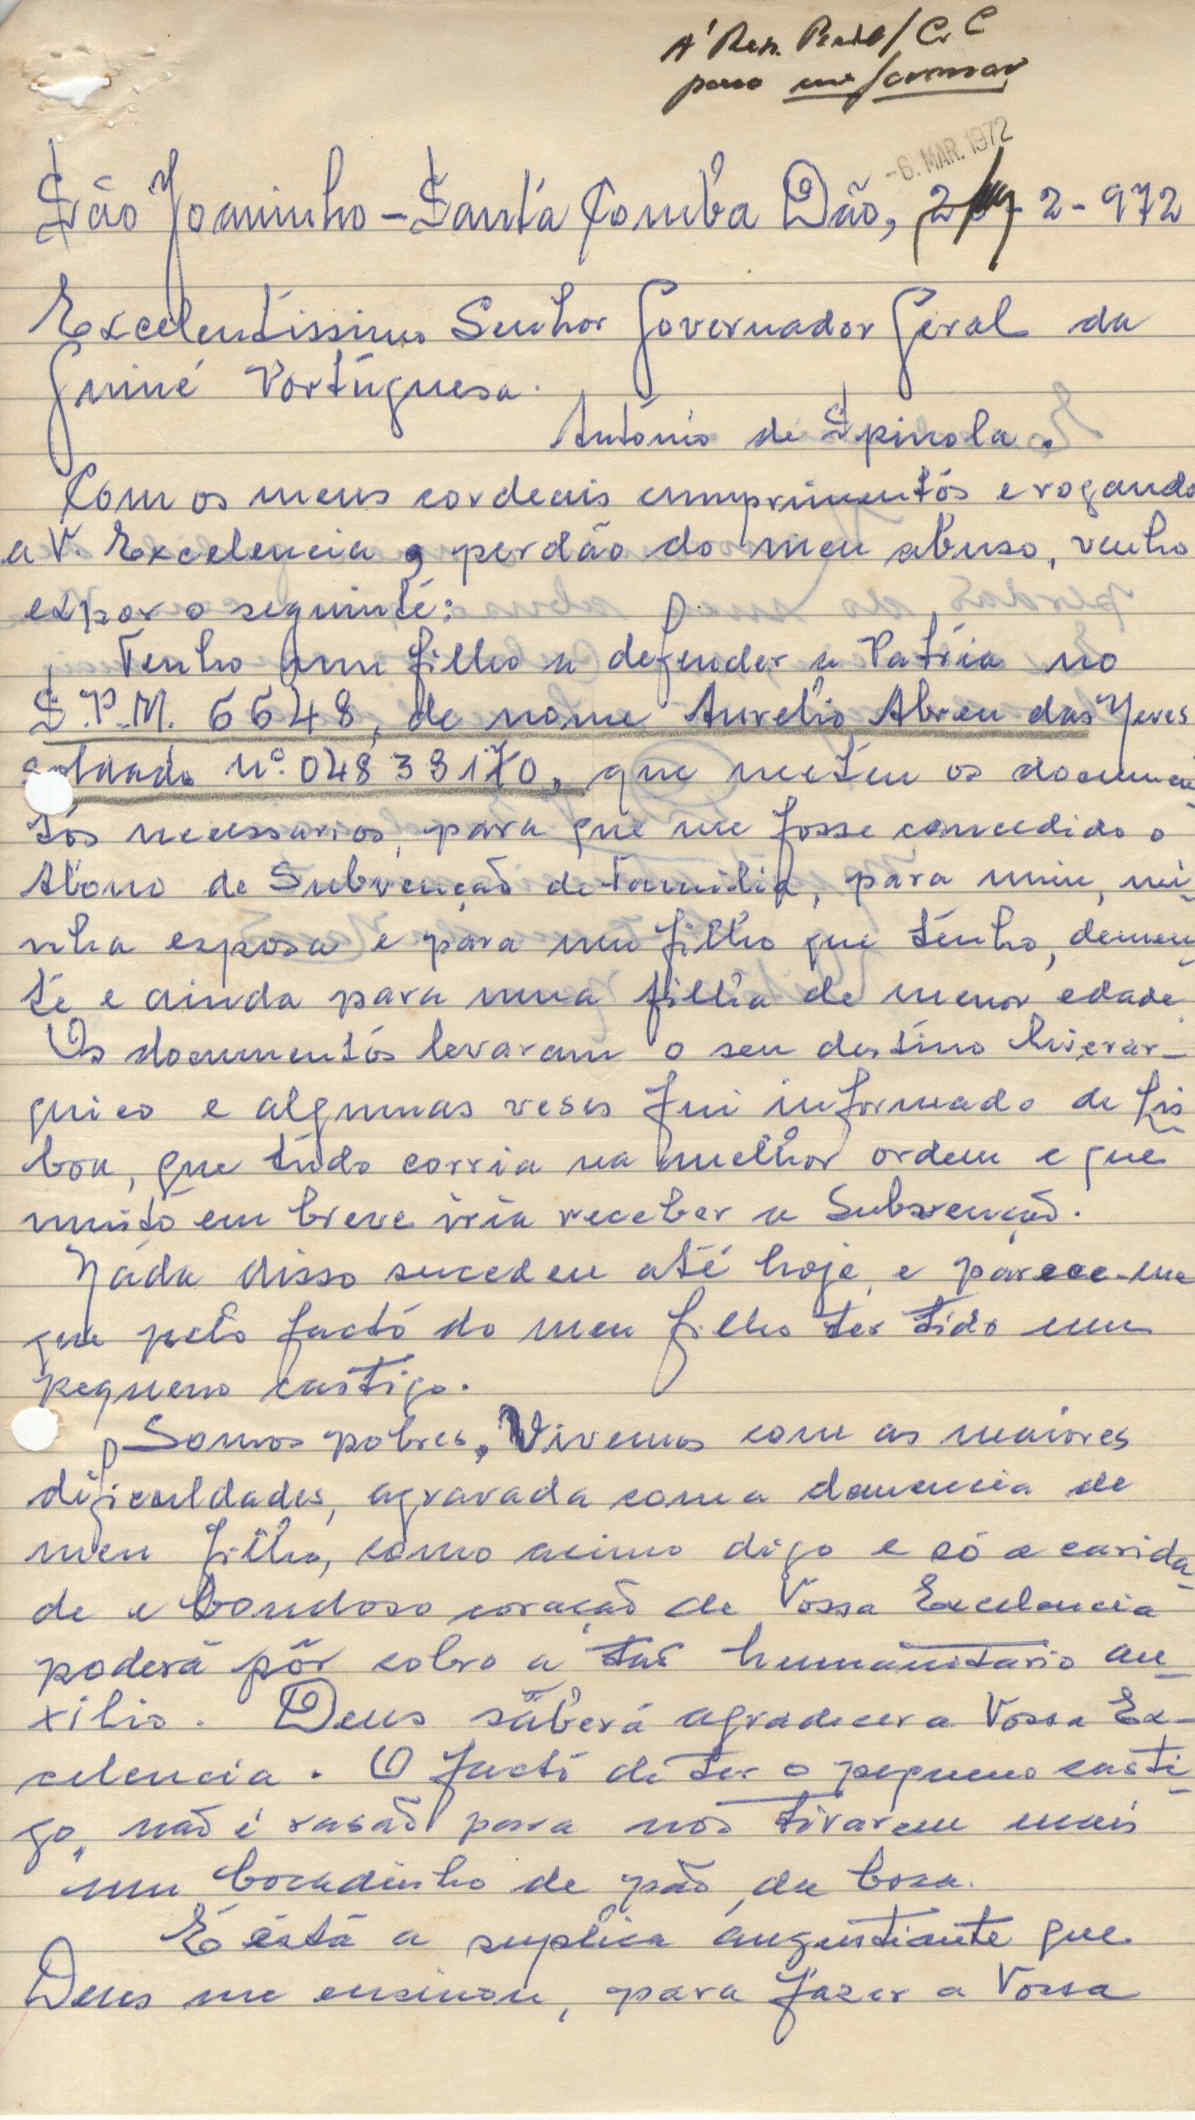 A' Rep. /C.C
para me informar
-6. MAR. 1972
São Joaninho - Santa Comba Dão, 2 - 2 - 972
Excelentíssimo Senhor Governador Geral da
Guiné Portúguesa.
António de Spinola.
Com os meus cordeais cumprimentós e rogando
a V. Excelencia perdão do meu abuso, venho
expor o seguinte:
Tenho um filho a defender a Patria no
S.P.M. 6648, de nome Aurelio Abreu das Neves
soldado nº. 04838170, que meteu os documen-
tós necessarios, para que me fosse concedido o
Abono de Subvenção de Familia, para mim, mi-
nha esposa e para um filho que tenho, demen-
te e ainda para uma filha de menor edade.
Os documentós levaram o seu destino hierar-
quico e algumas veses fui informado de Lis-
boa, que tudo corria na melhor ordem e que
muito em breve iria receber a Subvenção.
Nada disso sucedeu até hoje, e parece-me
que pelo facto do meu filho ter tido um
pequeno castigo.
Somos pobres. Vivemos com as maiores
dificuldades, agravada com a demencia de
meu filho, como acima digo e só a carida-
de e bondoso coração de Vossa Excelencia
poderá pôr cobro a tal humanitario au-
xilio. Deus saberá agradecer a Vossa Ex-
celencia. O facto de ter o pequeno casti-
go, não é rasão para nos tirarem mais
um bocadinho de pão da boca.
É esta a suplica angustiante que
Deus me ensinou, para fazer a Vossa